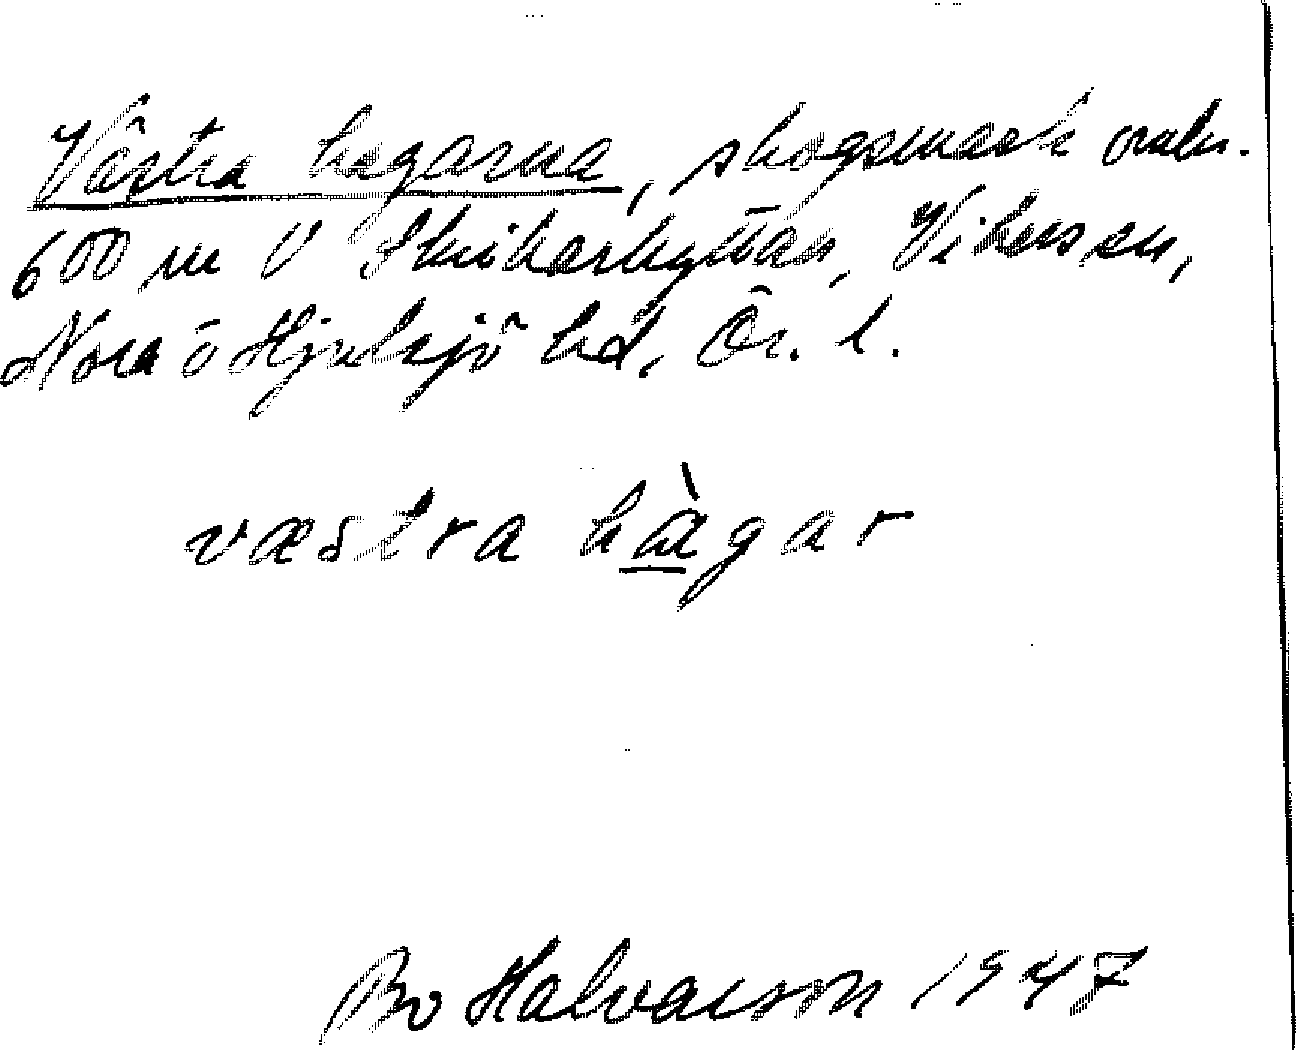 Västra hagarna, skogsmark omkr.
600 m V Skrikarhyttan, Vikers sn,
Nora o Hjulsjö hd, Ör. l.
væstra hàgar
Bo Halvarson 1947